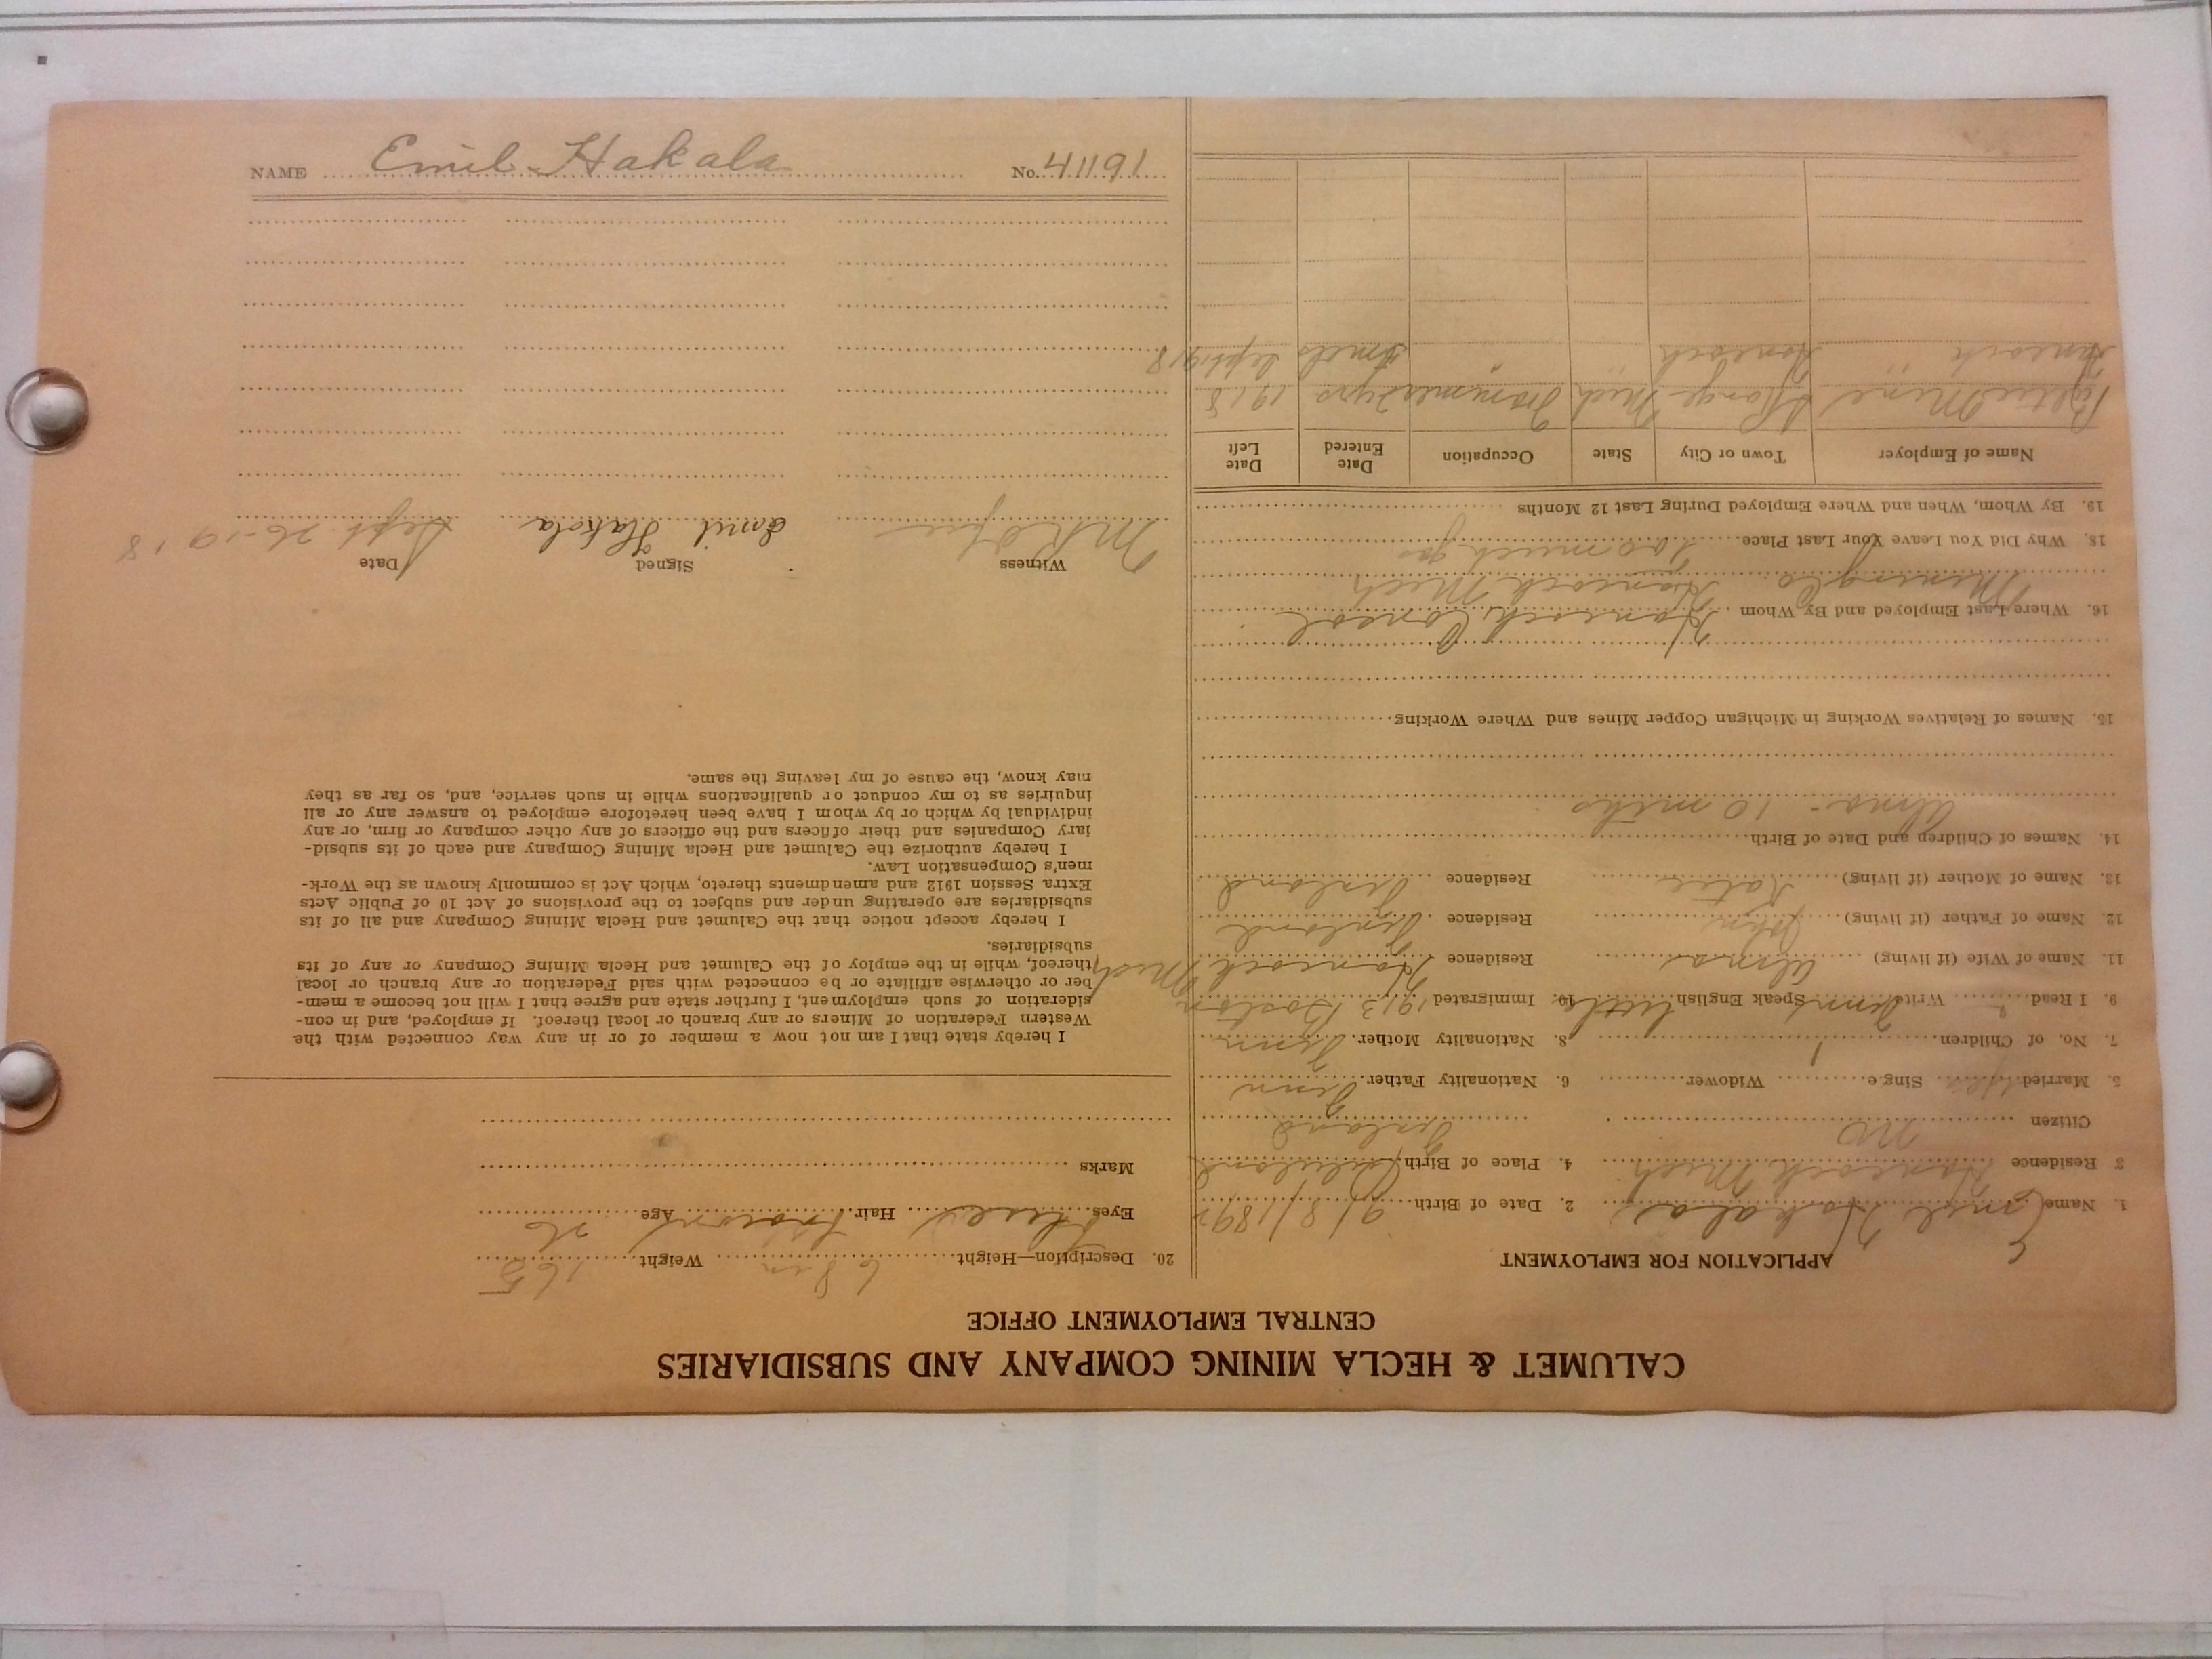 CALUMET & HECLA MINING COMPANY AND SUBSIDIARIES
CENTRAL EMPLOYMENT OFFICE
APPLICATION FOR EMPLOYMENT
1. Name Emil Hakala 2. Date of Birth 9/8/1892
3 Residence Hancock Mich 4. Place of Birth Finland
Citizen No
5. Married Single Widower 6. Nationality Father Finn
7. No. of Children 1 8. Nationality Mother Finn
9. I Read Write Finn Speak English little 10. Immigrated 1913 Boston
11. Name of Wife (if living) Alma Residence Hancock Mich
12. Name of Father (if living) John Residence Finland
13. Name of Mother (if living) Katie Residence Finland
14. Names of Children and Date of Birth
Alma - 10 mths
15. Names of Relatives Working in Michigan Copper Mines and Where Working
16. Where Last Employed and By Whom Hancock Consol
Mining Co. Hancock Mich
18. Why Did You Leave Your Last Place Too much gas
19. By Whom, When and Where Employed During Last 12 Months
Name of Employer Town or City State Occupation Date Entered Date Left
Baltic Mine Mich Trammer 2 yrs 1918
Hancock " Hancock " " Sept 1918
20. Description—Height 68 in Weight 165
Eyes Blue Hair Brown Age 26
Marks
I hereby state that I am not now a member of or in any way connected with the
Western Federation of Miners or any branch or local thereof. If employed, and in con-
sideration of such employment, I further state and agree that I will not become a mem-
ber or otherwise affiliate or be connected with said Federation or any branch or local
thereof, while in the employ of the Calumet and Hecla Mining Company or any of its
subsidiaries.
I hereby accept notice that the Calumet and Hecla Mining Company and all of its
subsidiaries are operating under and subject to the provisions of Act 10 of Public Acts
Extra Session 1912 and amendments thereto, which Act is commonly known as the Work-
men's Compensation Law.
I hereby authorize the Calumet and Hecla Mining Company and each of its subsid-
iary Companies and their officers and the officers of any other company or firm, or any
individual by which or by whom I have been heretofore employed to answer any or all
inquiries as to my conduct or qualifications while in such service, and, so far as they
may know, the cause of my leaving the same.
Witness Signed Date
Emil Hakola Sept 26-1918
NAME Emil Hakala No. 41191